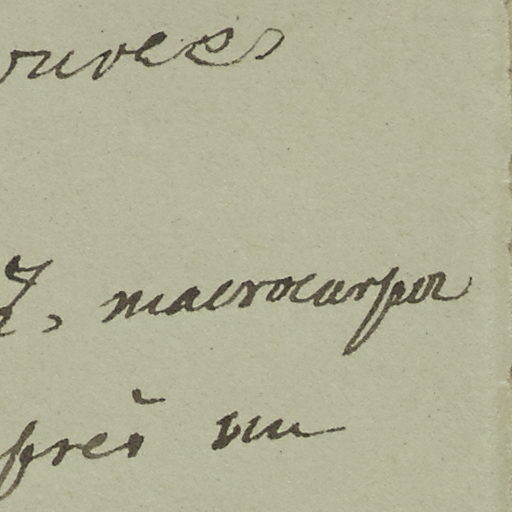 ouvees
, macrocarpa
près un